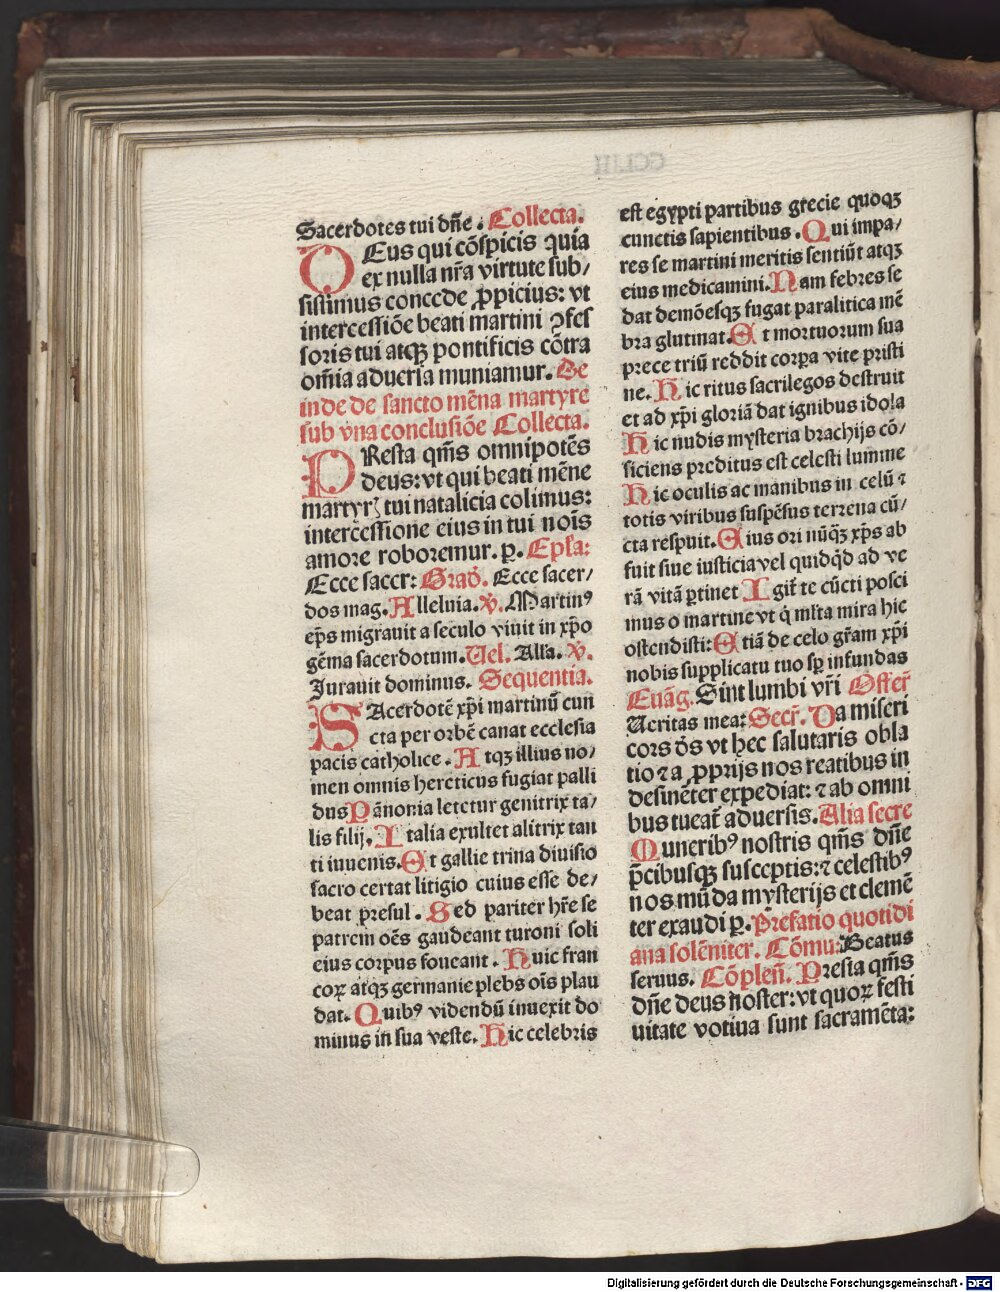 Sacerdotes tui dn̄e . Collecta.
DEus qui cōspicis quia
ex nulla nr̄a virtute sub/
sistimus concede ꝓpicius: vt
intercessiōe beati martini ꝯfes
soris tui atqꝫ pontificis cōtra
om̄ia aduersa muniamur. De
inde de sancto mēna martyre
sub vna conclusiōe Collecta.
PResta qm̄s omnipotēs
deus: vt qui beati mēne
martyrꝭ tui natalicia colimus:
intercessione eius in tui noīs
amore roboremur. ꝑ. Epl̄a:
Ecce sacer: Grad̄. Ecce sacer/
dos mag. Alleluia. V̄. Martinꝰ
ep̄s migrauit a seculo viuit in xp̄o
gēma sacerdotum. Uel. All̄a. V̄.
Jurauit dominus. Sequentia.
SAcerdotē xp̄i martinū cun
cta per orbē canat ecclesia
pacis catholice . Atqꝫ illius no/
men omnis hereticus fugiat palli
dus Pānonia letetur genitrix ta/
lis filij. Italia exultet alitrix tan
ti iuuenis. Et gallie trina diuisio
sacro certat litigio cuius esse de/
beat presul . Sed pariter hr̄e se
patrem oēs gaudeant turoni soli
eius corpus foueant . Huic fran
coꝝ atqꝫ germanie plebs oīs plau
dat. Quibꝰ videndū inuexit do
minus in sua veste. Hic celebris
est egypti partibus grecie quoqꝫ
cunctis sapientibus . Qui impa/
res se martini meritis sentiūt atqꝫ
eius medicamini. Nam febres se
dat demōesqꝫ fugat paralitica mē
bra glutinat. Et mortuorum sua
prece triū reddit corpa vite pristi
ne. Hic ritus sacrilegos destruit
et ad xp̄i gloriā dat ignibus idola
Hic nudis mysteria brachijs cō/
ficiens preditus est celesti lumine
Hic oculis ac manibus in celū ⁊
totis viribus suspēsus terrena cū/
cta respuit. Eius ori nūqꝫ xp̄s ab
fuit siue iusticia vel quidqd̄ ad ve
rā vitā ꝑtinet Igit̄ te cūcti posci
mus o martine vt q̇ ml̄ta mira hic
ostendisti: Etiā de celo gr̄am xp̄i
nobis supplicatu tuo sꝑ infundas
Euāg. Sint lumbi vr̄i Offer̄
Ueritas mea: Secr̄. Da miseri
cors ds̄ vt hec salutaris obla
tio ⁊ a ꝓprijs nos reatibus in
desinēter expediat: ⁊ ab omni
bus tueat̄ aduersis. Alia secre
Muneribꝰ nostris qm̄s dn̄e
p̄cibusqꝫ susceptis: ⁊ celestibꝰ
nos mūda mysterijs et clemē
ter exaudi ꝑ. Prefatio quotidi
ana solēniter. Cōmu: Beatus
seruus. Cōplen̄. Presta qm̄s
dn̄e deus noster: vt quoꝝ festi
uitate votiua sunt sacramēta:
Digitalisierung gefördert durch die Deutsche Forschungsgemeinschaft - DFG